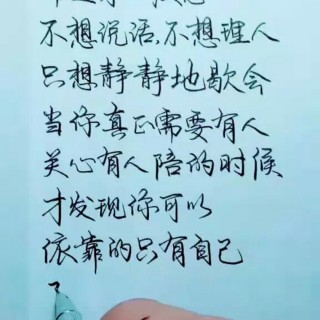 不想说话,不想理人
只想静静地歇会
当你真正需要有人
关心有人陪的时候
才发现你可以
依靠的只有自己